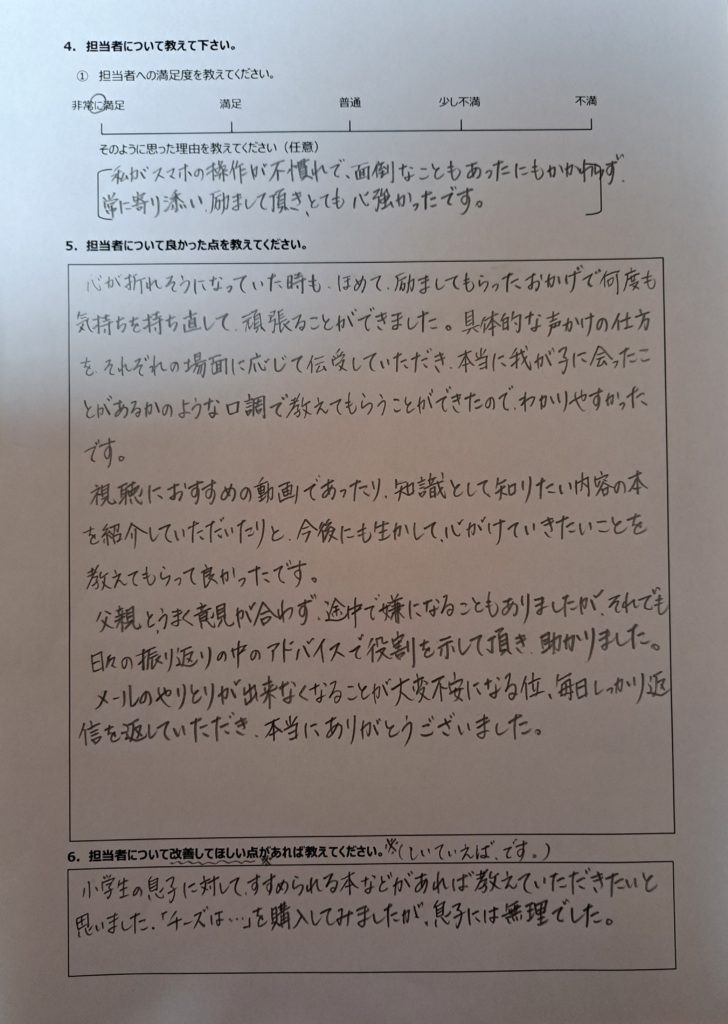 4. 担当者について教えて下さい。
① 担当者への満足度を教えてください。
非常に満足 満足 普通 少し不満 不満
そのように思った理由を教えてください（任意）
私がスマホの操作が不慣れで、面倒なこともあったにもかかわらず、
常に寄り添い、励まして頂き、とても心強かったです。
5. 担当者について良かった点を教えてください。
心が折れそうになっていた時も、ほめて、励ましてもらったおかげで何度も
気持ちを持ち直して、頑張ることができました。具体的な声かけの仕方
を、それぞれの場面に応じて伝受していただき、本当に我が子に会ったこ
とがあるかのような口調で教えてもらうことができたので、わかりやすかった
です。
視聴におすすめの動画であったり、知識として知りたい内容の本
を紹介していただいたりと、今後にも生かして、心がけていきたいことを
教えてもらって良かったです。
父親とうまく意見が合わず、途中で嫌になることもありましたが、それでも
日々の振り返りの中のアドバイスで役割を示して頂き、助かりました。
メールのやりとりが出来なくなることが大変不安になる位、毎日しっかり返
信を返していただき、本当にありがとうございました。
6. 担当者について改善してほしい点があれば教えてください。※(しいていえば、です。)
小学生の息子に対して、すすめられる本などがあれば教えていただきたいと
思いました。「チーズは…」を購入してみましたが、息子には無理でした。